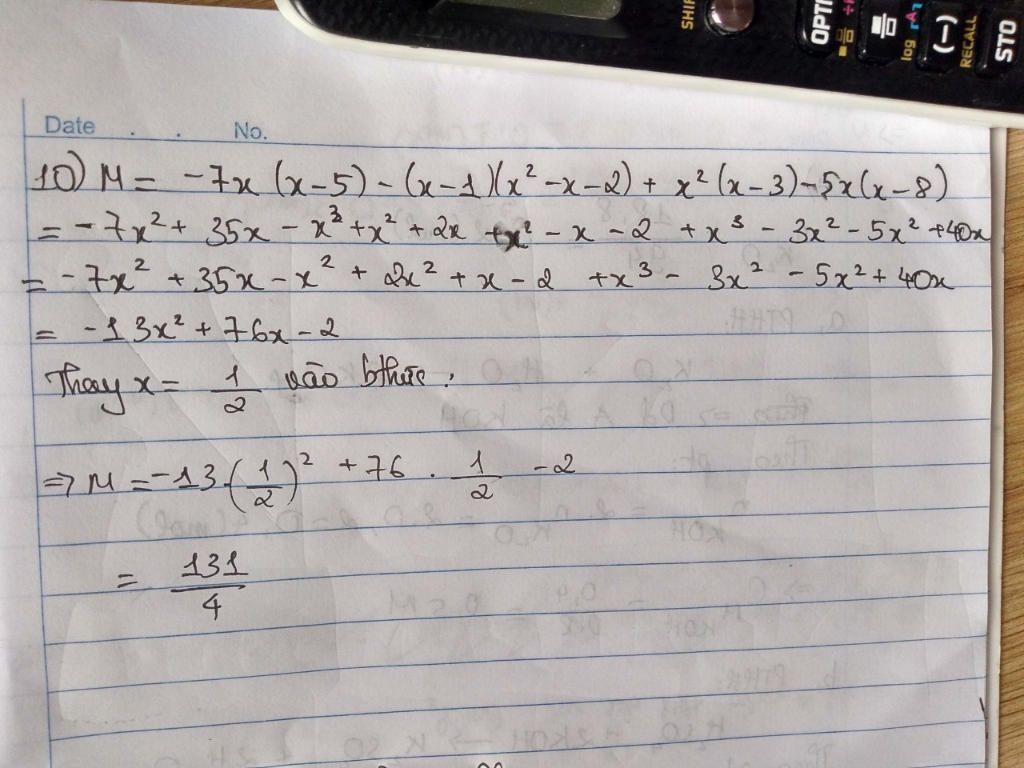 SHIF OPTI log (-) RECALL STO
Date . . No.
10) M = -7x (x-5) - (x-1)(x² -x-2) + x² (x-3) - 5x(x-8)
= -7x² + 35x - x³ + x² + 2x + x² - x - 2 + x³ - 3x² - 5x² + 40x
= -7x² + 35x - x² + 2x² + x - 2 + x³ - 3x² - 5x² + 40x
= -13x² + 76x - 2
Thay x = 1/2 vào bthức :
=> M = -13.(1/2)² + 76 . 1/2 - 2
= 131/4